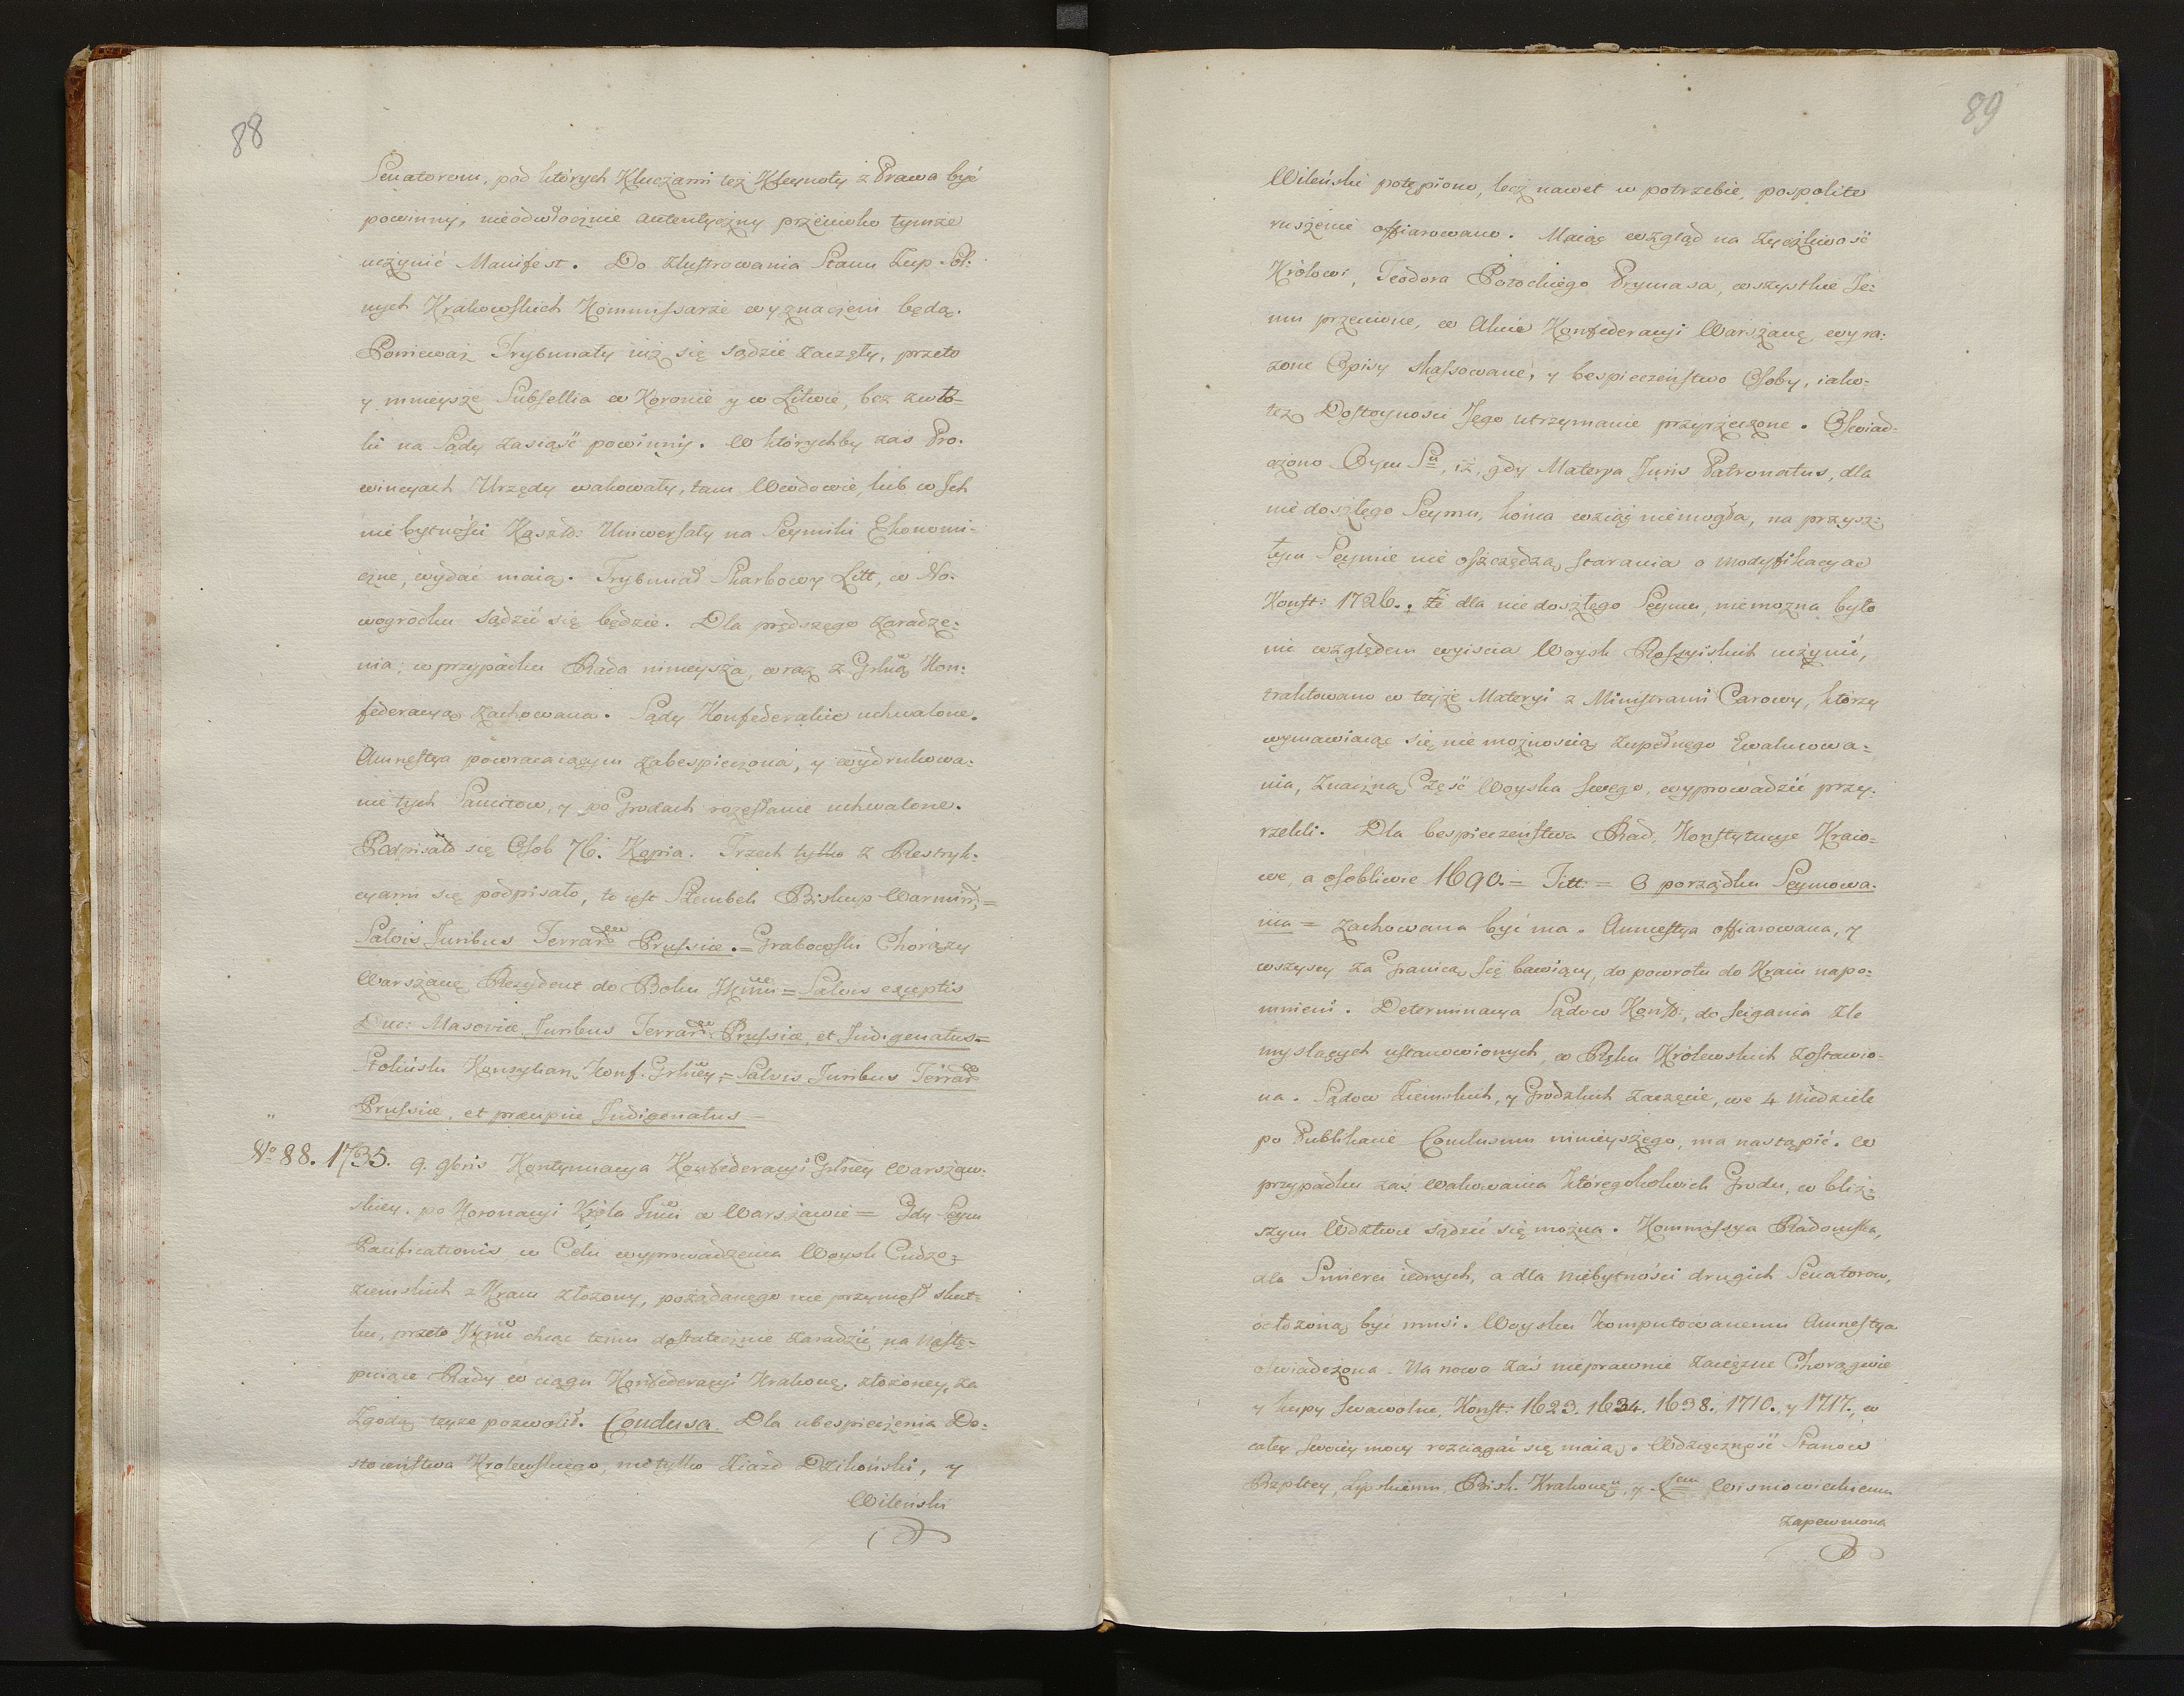 88
Senatorom, pod których Kluczami też Kleynoty z Prawa być
powinny, nieodwłocznie autentyczny przeciwko tymże
uczynić Manifest. Do zlustrowania Stanu Zup Sol:
nych Krakowskich Kommissarze wyznaczeni będą.
Ponieważ Trybunały iuż się sądzić zaczęły, przeto
y mnieysze Subsellia w Koronie y w Litwie, bez zwło-
ki na Sądy zasiąść powinny. W którychby zaś Pro-
wincyach Urzędy wakowały, tam Wwdowie, lub w Jch
niebytności Kaszt: Uniwersały na Seymiki Ekonomi-
czne, wydać maią. Trybunał Skarbowy Litt, w No-
wogrodku sądzić się będzie. Dla prędszego zaradze-
nia, w przypadku Rada nineysza, wraz z Grlną Kon:
federacyą zachowana. Sądy Konfederackie uchwalone.
Amnestya powracaiącym zabespieczona, y wydrukowa-
nie tych Sancitow, y po Grodach rozesłanie uchwalone.
Podpisało się Osob 76. Kopia. Trzech tylko z Restryk:
cyami się podpisało, to iest Szembek Biskup Warmiń,=
Salvis Juribus Terrar Prussiæ.= Grabowski Chorąży
Warszawę Rezydent do Boku JKMci = Salvis exceptis
Duc: Masoviæ, Juribus Terrar Prussiæ, et Indigenatus=
Stoliński Konsyliarz Konf. Grlney = Salvis Juribus Terrar
Prussiæ, et præcipue Indigenatus=
„
No 88. 1735. 9. 9bris Kontynuacya Konfederacyi Grlney Warszaw-
skiey, po Koronacyi Króla Jmci w Warszawie = Gdy Seym
Pacificationis, w Celu wyprowadzenia Woysk Cudzo-
ziemskich z Kraiu złożony, pożądanego nie przyniosł skut-
ku, przeto JKMć chcąc temu dostatecznie zaradzić na nastę-
puiące Rady w ciągu Konfederacyi Krakowę, złożoney, za
Zgodą teyże pozwolił. Conclusa. Dla ubespieczenia Do-
stoieństwa Krolewskiego, nietylko Ziazd Dzikoński, y
Wileński
89
Wileński potępiono, lecz nawet w potrzebie, pospolite
ruszenie offiarowano. Maiąc wzgląd na życzliwość
Królowi, Teodora Potockiego Prymasa, wszystkie Je:
mu przeciwne, w Akcie Konfederacyi Warszawę wyra:
zone Opisy skassowane, y bespieczeństwo Osoby, iako-
też Dostoyności Jego utrzymanie przyrzeczone. Oświad-
czono Oycu Su, iż, gdy Materya Juris Patronatus, dla
niedoszłego Seymu, końca wziąć niemogła, na przysz:
łym Seymie nie oszczędzą starania o modyfikacyą
Konst: 1726. Że dla niedoszłego Seymu, niemożna było
nic względem wyiscia Woysk Rossyiskich uczynić,
traktowano w teyże Materyi z Ministrami Carowy, którzy
wymawiaiąc się niemożnością zupełnego Ewakuowa-
nia, znaczną Część Woyska swego, wyprowadzić przy-
rzekli. Dla bespieczeństwa Rad, Konstytucye Kraio-
we, a osobliwie 1690.= Titt:= O porządku Seymowa-
nia = zachowana być ma. Amnestya offiarowana, y
wszyscy za Granicą się bawiący, do powrotu do Kraiu napo-
mnieni. Determinacya Sądow Konfd:, do ścigania źle
myślących ustanowionych, w Ręku Królewskich zostawio-
na. Sądow Ziemskich, y Grodzkich zaczęcie, we 4 Niedziele
po Publikacie Conclusum ninieyszego, ma nastąpić. W
przypadku zaś Wakowania któregokolwiek Grodu, w bliż-
szym Wdztwie sądzić się można. Kommissya Radomska,
dla Smierci iednych, a dla niebytności drugich Senatorow,
odłożoną być musi. Woysku komputowanemu Amnestya
oświadczona. Na nowo zaś nieprawnie zaciężne Chorągwie
y kupy swawolne, Konst: 1623. 1634. 1638. 1710., y 1717., w
całey swoiey mocy rozciągać się maią. Wdzięczność Stanow
Rzpltey, Lipskiemu, Bisk. Krakowę, y Wisniowieckiemu
zapewniona